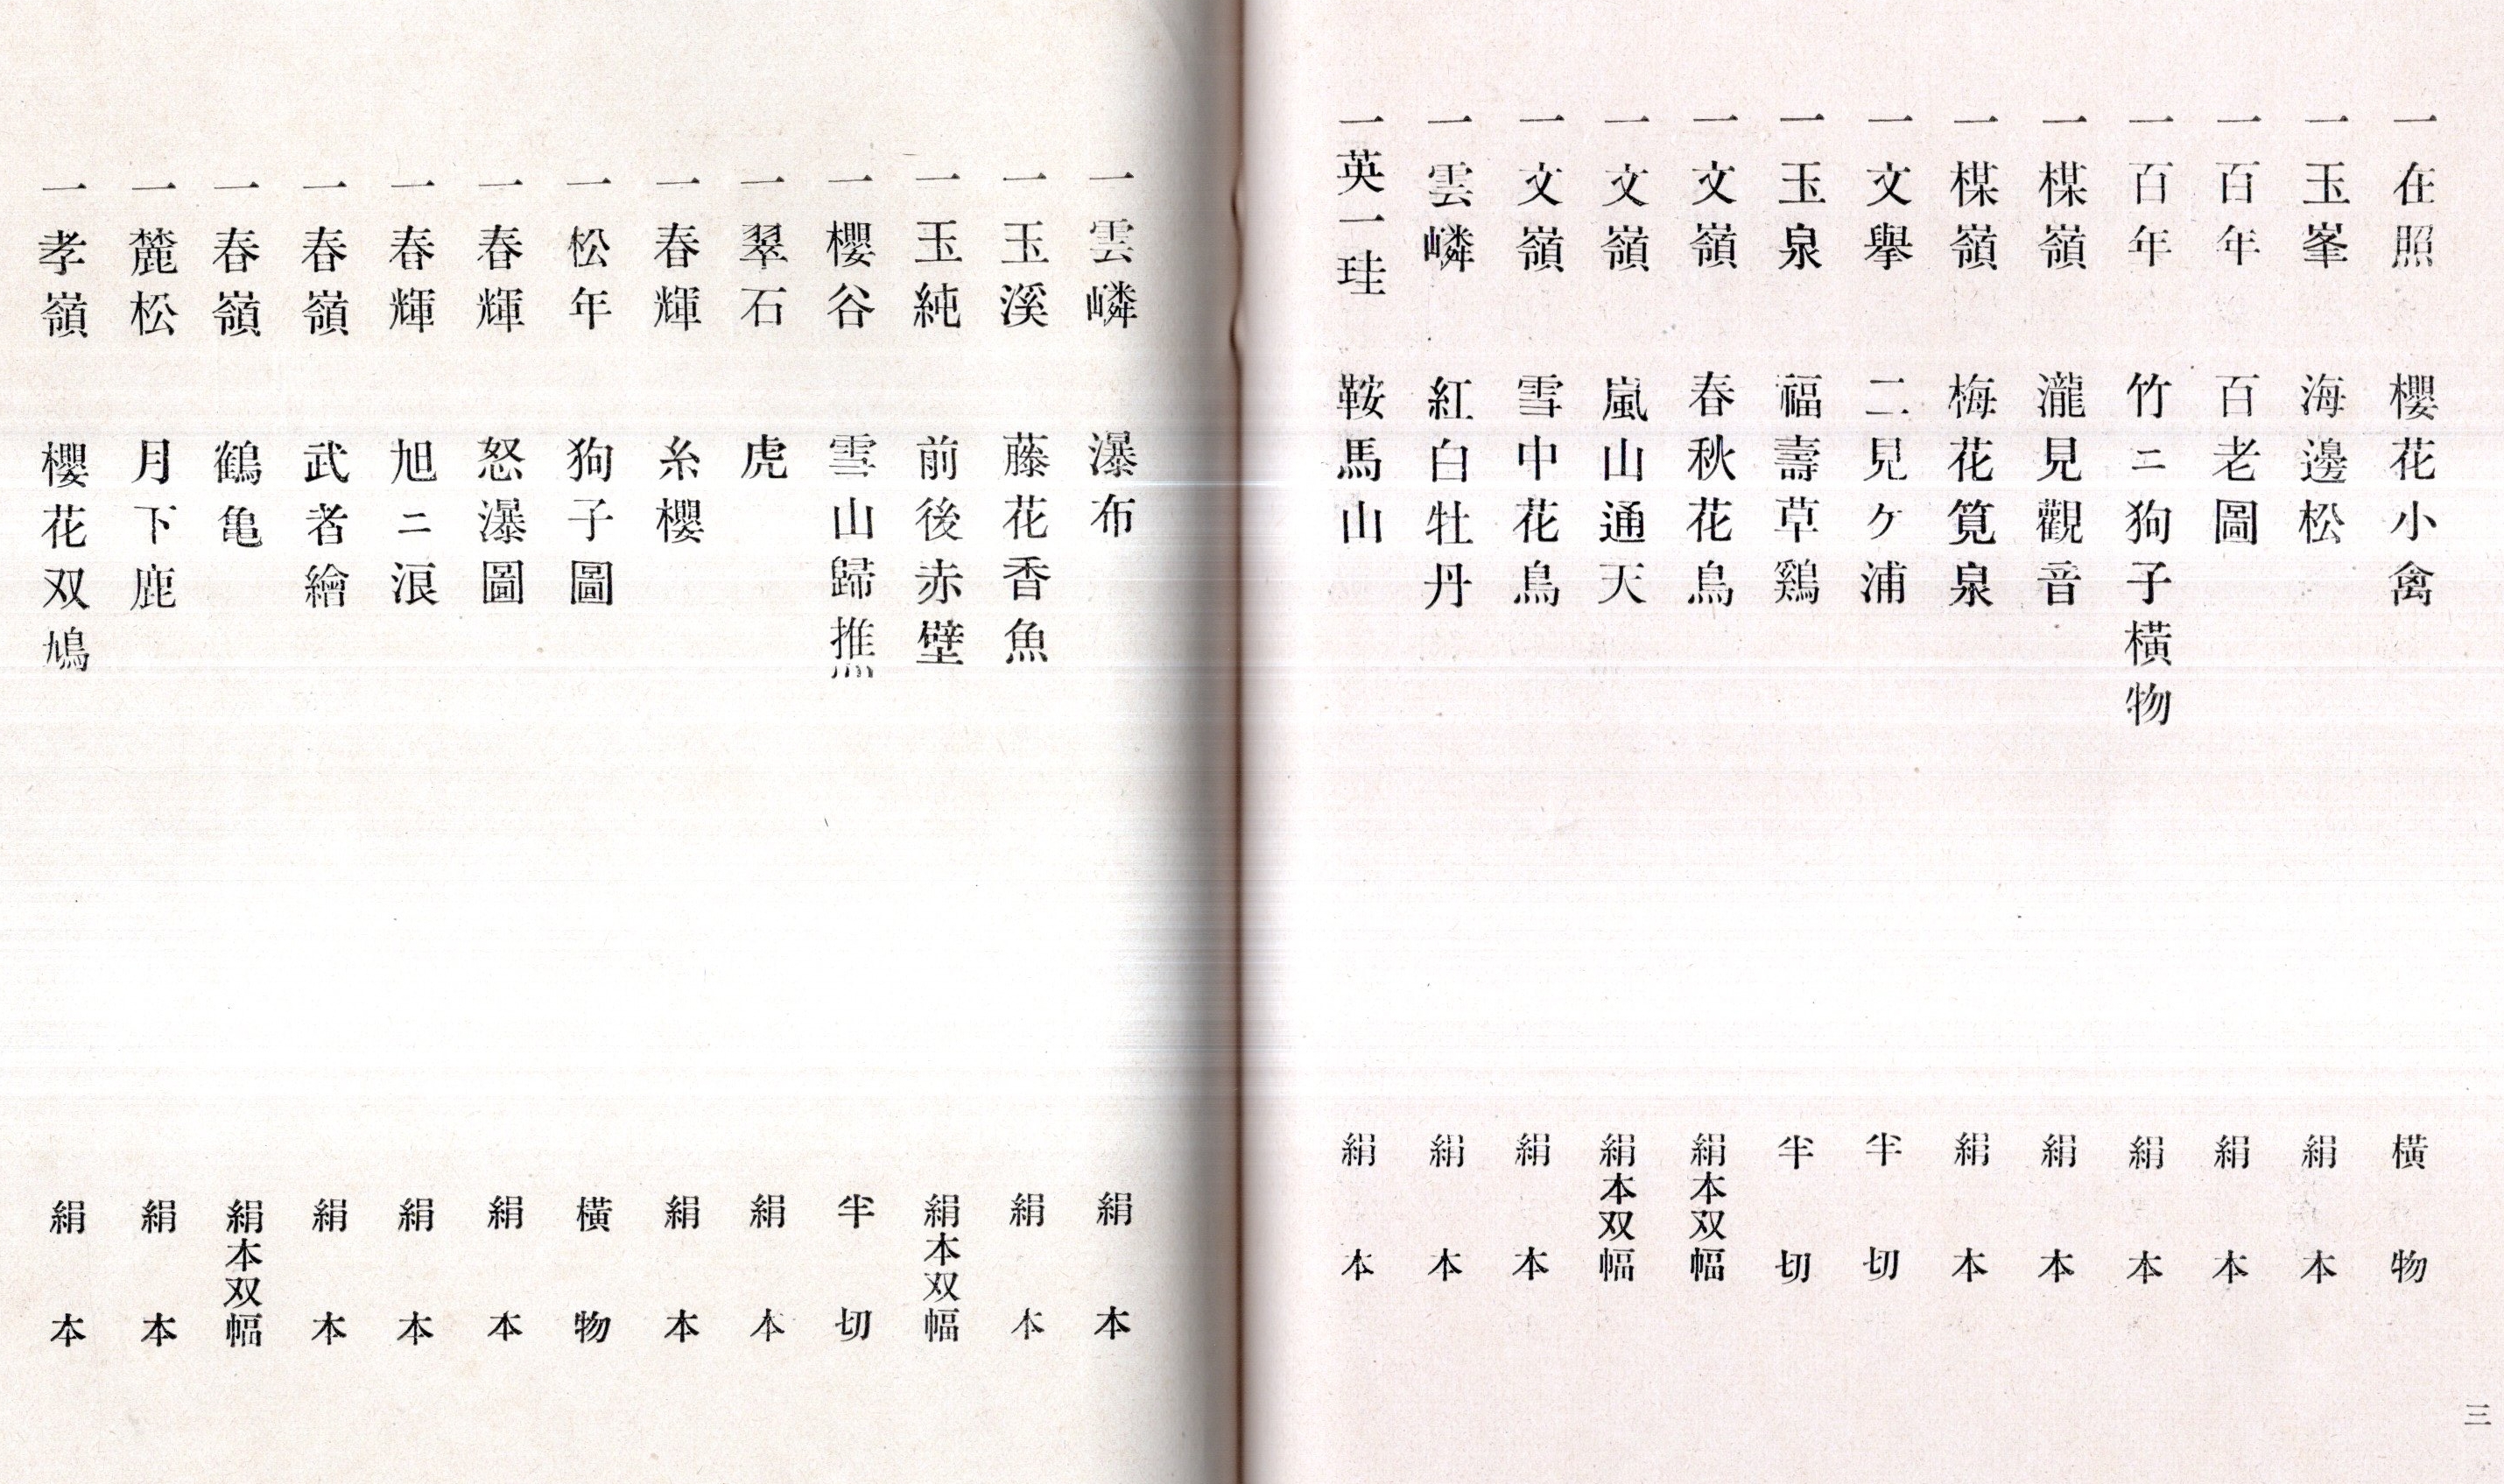 一 在照 櫻花小禽 橫物
一 玉峯 海邊松 絹本
一 百年 百老圖 絹本
一 百年 竹ニ狗子橫物 絹本
一 楳嶺 瀧見觀音 絹本
一 楳嶺 梅花筧泉 絹本
一 文擧 二見ケ浦 半切
一 玉泉 福壽草鷄 半切
一 文嶺 春秋花鳥 絹本双幅
一 文嶺 嵐山通天 絹本双幅
一 文嶺 雪中花鳥 絹本
一 雲嶙 紅白牡丹 絹本
一 英一珪 鞍馬山 絹本
三
一 雲嶙 瀑布 絹本
一 玉溪 藤花香魚 絹本
一 玉純 前後赤壁 絹本双幅
一 櫻谷 雪山歸推灬 半切
一 翠石 虎 絹本
一 春輝 糸櫻 絹本
一 松年 狗子圖 橫物
一 春輝 怒瀑圖 絹本
一 春輝 旭ニ浪 絹本
一 春嶺 武者繪 絹本
一 春嶺 鶴亀 絹本双幅
一 麓松 月下鹿 絹本
一 孝嶺 櫻花双鳩 絹本